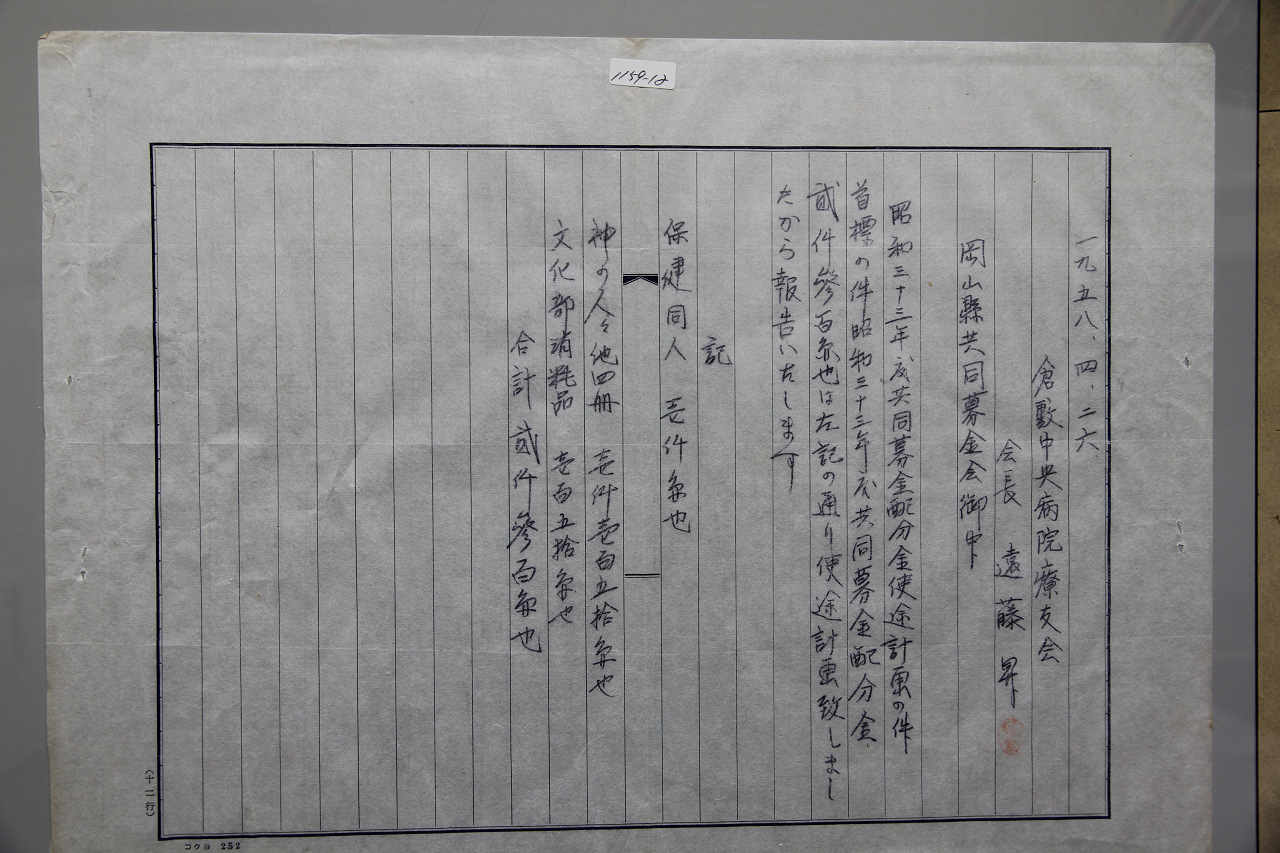 1159-12
一九五八、四、二六
倉敷中央病院療友会
会長 遠藤 昇
岡山縣共同募金会御中
昭和三十三年度共同募金配分金使途計画の件
首標の件昭和三十三年度共同募金配分金
貳仟參百円也は左記の通り使途計画致しまし
たから報告いたします
記
保健同人 壱仟円也
神の人々他四冊 壱仟壱百五拾円也
文化部消耗品 壱百五拾円也
合計 貳仟參百円也
(十二行)
コクヨ 252